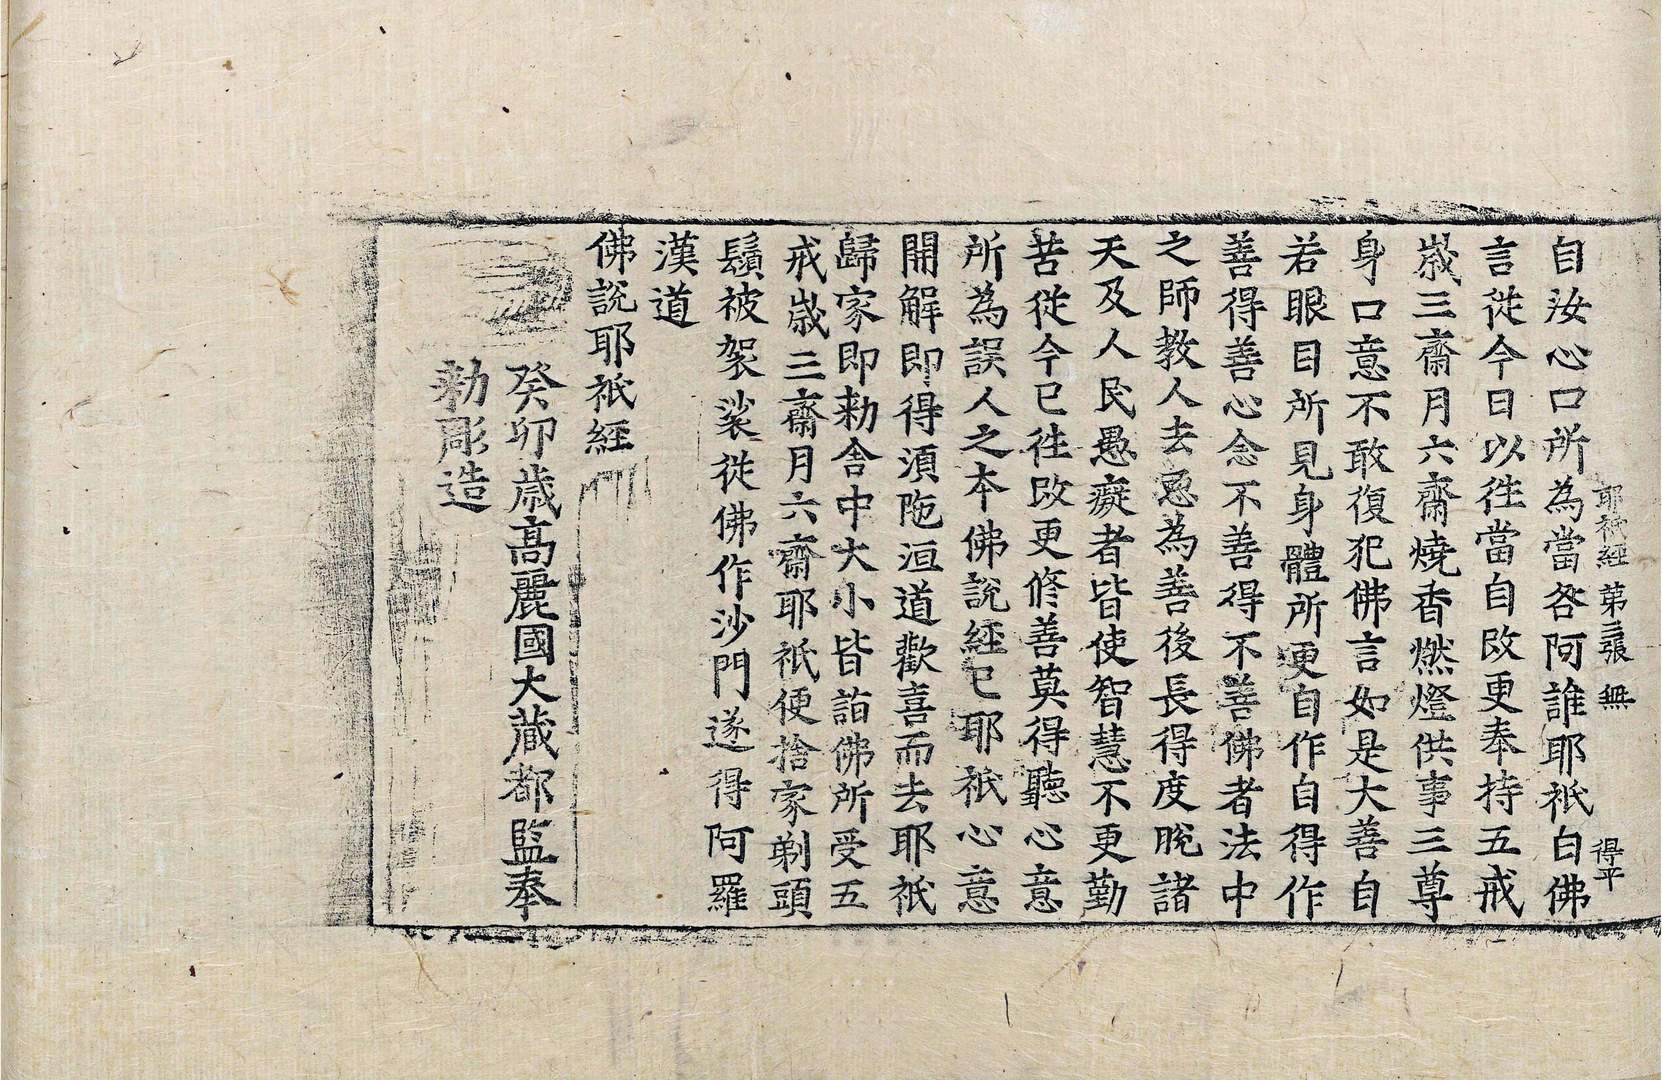 耶祇經 第三張 無 得平
自汝心口所為當咎阿誰耶祇白佛
言從今日以往當自改更奉持五戒
歲三齋月六齋燒香燃燈供事三尊
身口意不敢復犯佛言如是大善自
若眼目所見身體所更自作自得作
善得善心念不善得不善佛者法中
之師教人去惡為善後長得度脫諸
天及人民愚癡者皆使智慧不更勤
苦從今已往改更修善莫得聽心意
所為誤人之本佛說經已耶祇心意
開解即得須陁洹道歡喜而去耶祇
歸家即勑舍中大小皆詣佛所受五
戒歲三齋月六齋耶祇便捨家剃頭
鬚被袈裟從佛作沙門遂得阿羅
漢道
佛說耶祇經
癸卯歲高麗國大藏都監奉
勑彫造